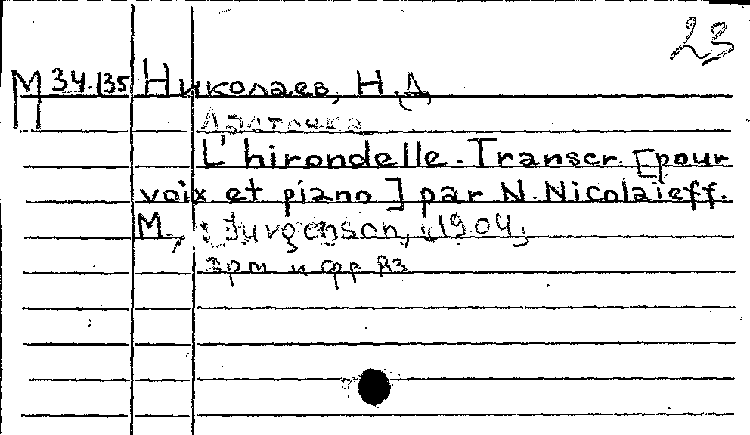 23
М 34.135 Николаев, Н.Д.
Ласточка
L'hirondelle. Transcr. [pour
voix et piano] par N. Nicolaïeff.
М., : Jurgenson, 1904.
и фр яз